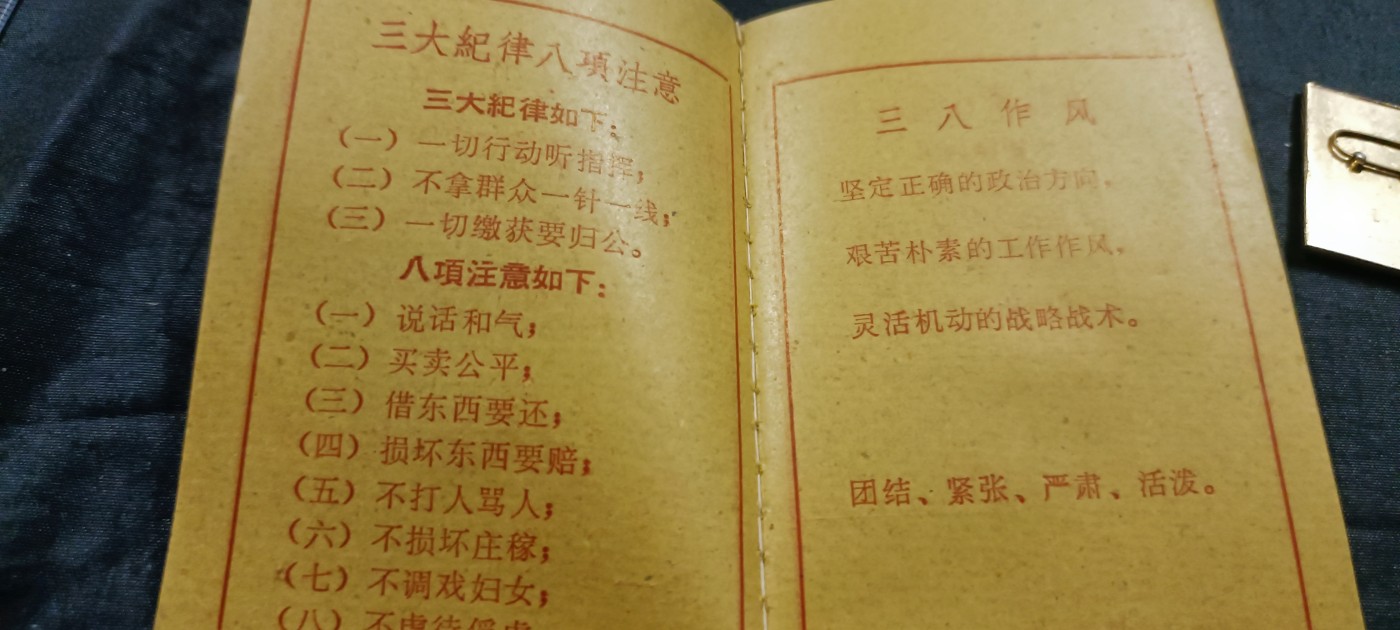 三大紀律八項注意
三大紀律如下：
（一）一切行动听指挥；
（二）不拿群众一针一线；
（三）一切缴获要归公。
八項注意如下：
（一）说话和气；
（二）买卖公平；
（三）借东西要还；
（四）损坏东西要赔；
（五）不打人骂人；
（六）不损坏庄稼；
（七）不调戏妇女；
（八）不虐待俘虏
三八作风
坚定正确的政治方向，
艰苦朴素的工作作风，
灵活机动的战略战术。
团结、紧张、严肃、活泼。